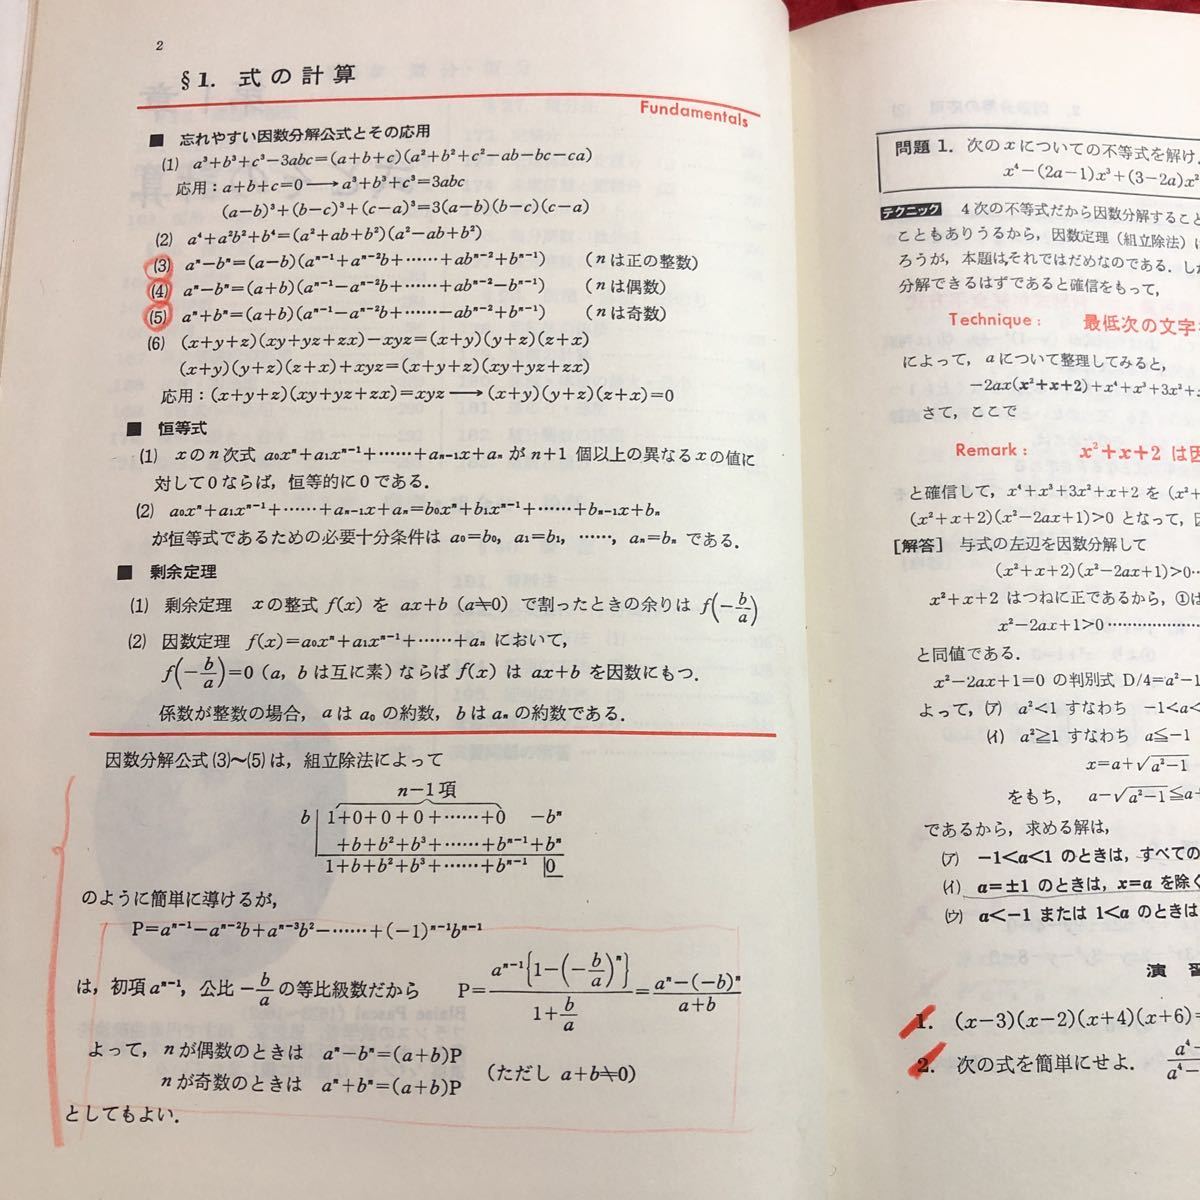 2
§1. 式の計算
Fundamentals
■ 忘れやすい因数分解公式とその応用
(1) a³+b³+c³−3abc=(a+b+c)(a²+b²+c²−ab−bc−ca)
応用:a+b+c=0⟶a³+b³+c³=3abc
(a−b)³+(b−c)³+(c−a)³=3(a−b)(b−c)(c−a)
(2) a⁴+a²b²+b⁴=(a²+ab+b²)(a²−ab+b²)
(3) aⁿ−bⁿ=(a−b)(aⁿ⁻¹+aⁿ⁻²b+……+abⁿ⁻²+bⁿ⁻¹) (nは正の整数)
(4) aⁿ−bⁿ=(a+b)(aⁿ⁻¹−aⁿ⁻²b+……+abⁿ⁻²−bⁿ⁻¹) (nは偶数)
(5) aⁿ+bⁿ=(a+b)(aⁿ⁻¹−aⁿ⁻²b+……−abⁿ⁻²+bⁿ⁻¹) (nは奇数)
(6) (x+y+z)(xy+yz+zx)−xyz=(x+y)(y+z)(z+x)
(x+y)(y+z)(z+x)+xyz=(x+y+z)(xy+yz+zx)
応用:(x+y+z)(xy+yz+zx)=xyz⟶(x+y)(y+z)(z+x)=0
■ 恒等式
(1) xのn次式 a₀xⁿ+a₁xⁿ⁻¹+……+aₙ₋₁x+aₙ が n+1 個以上の異なるxの値に
対して0ならば,恒等的に0である.
(2) a₀xⁿ+a₁xⁿ⁻¹+……+aₙ₋₁x+aₙ=b₀xⁿ+b₁xⁿ⁻¹+……+bₙ₋₁x+bₙ
が恒等式であるための必要十分条件は a₀=b₀, a₁=b₁, ……, aₙ=bₙ である.
■ 剰余定理
(1) 剰余定理 xの整式 f(x) を ax+b (a≠0) で割ったときの余りは f(−b/a)
(2) 因数定理 f(x)=a₀xⁿ+a₁xⁿ⁻¹+……+aₙ において,
f(−b/a)=0 (a, bは互に素)ならば f(x) は ax+b を因数にもつ.
係数が整数の場合, aは a₀ の約数, bは aₙ の約数である.
因数分解公式(3)~(5)は,組立除法によって
n−1項
b 1+0+0+0+……+0 −bⁿ
+b+b²+b³+……+bⁿ⁻¹+bⁿ
1+b+b²+b³+……+bⁿ⁻¹ 0
のように簡単に導けるが,
P=aⁿ⁻¹−aⁿ⁻²b+aⁿ⁻³b²−……+(−1)ⁿ⁻¹bⁿ⁻¹
は,初項 aⁿ⁻¹, 公比 −b/a の等比級数だから P=aⁿ⁻¹{1−(−b/a)ⁿ}/(1+b/a)=(aⁿ−(−b)ⁿ)/(a+b)
よって, nが偶数のときは aⁿ−bⁿ=(a+b)P
nが奇数のときは aⁿ+bⁿ=(a+b)P (ただし a+b≠0)
としてもよい.
問題 1. 次のxについての不等式を解け.
x⁴−(2a−1)x³+(3−2a)x²
テクニック 4次の不等式だから因数分解すること
こともありうるから,因数定理(組立除法)は
ろうが,本題はそれではだめなのである.しか
分解できるはずであると確信をもって,
Technique: 最低次の文字
によって, aについて整理してみると,
−2ax(x²+x+2)+x⁴+x³+3x²+
さて,ここで
Remark: x²+x+2 は因
と確信して, x⁴+x³+3x²+x+2 を (x²+
(x²+x+2)(x²−2ax+1)>0 となって,因
[解答] 与式の左辺を因数分解して
(x²+x+2)(x²−2ax+1)>0…
x²+x+2 はつねに正であるから,①は
x²−2ax+1>0……………
と同値である.
x²−2ax+1=0 の判別式 D/4=a²−1
よって,(ア) a²<1 すなわち −1<a<
(イ) a²≧1 すなわち a≦−1
x=a+√a²−1
をもち, a−√a²−1≦a+
であるから,求める解は,
(ア) −1<a<1 のときは,すべての
(イ) a=±1 のときは, x=a を除く
(ウ) a<−1 または 1<a のときは
演習
1. (x−3)(x−2)(x+4)(x+6)=
2. 次の式を簡単にせよ.